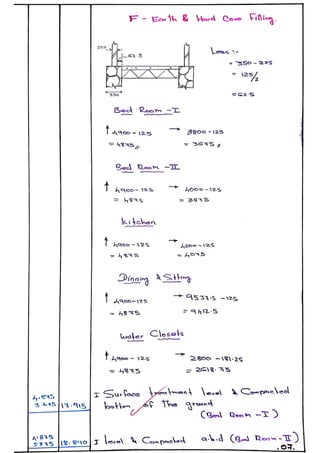 F - Earth & Hard Core Filling.
225
62.5
350
Less :-
= 350 - 225
= 125/2
= 62.5
Bed Room - I
↑ 4900 - 125 → 3800 - 125
= 4875 // = 3675 //
Bed Room - II
↑ 4900 - 125 → 4000 - 125
= 4875 = 3875
Kitchen
↑ 4900 - 125 → 4200 - 125
= 4875 = 4075
Dinning & Sitting
↑ 4900 - 125 → 9537.5 - 125
= 4875 = 9412.5
Water Closets
↑ 4900 - 125 → 2800 - 181.25
= 4875 = 2618.75
4.875
3.675 17.915 I Surface treatment level & Compacted
bottom of the ground
(Bed Room - I)
4.875
3.875 18.890 I level & Compacted a.b.d (Bed Room - II)
.07.